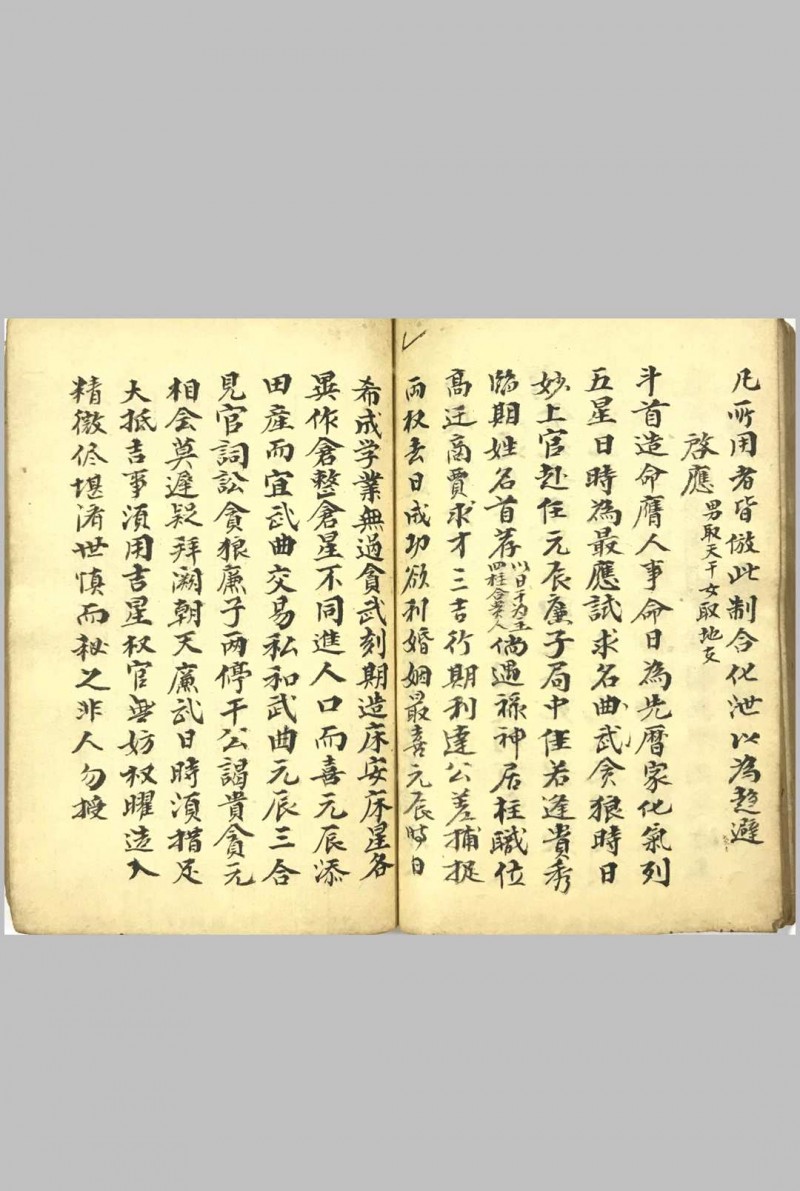 凡所用者皆倣此制合化泄以為趋避
啓應 男取天干女取地支
斗首造命應人事命日為先曆家化氣列
五星日時為最應試求名曲武貪狼時日
妙上官赴任元辰廉子局中佳若逢貴秀
臨期姓名首荐以日干为主四柱合人倘遇祿神居柱職位
高迁商賈求才三吉行期利達公差捕捉
兩权去日成功欲利婚姻最喜元辰時日
希成学業無過貪武刻期造床安床星各
異作倉整倉星不同進人口而喜元辰添
田産而宜武曲交易私和武曲元辰三合
見官詞訟貪狼廉子兩停干公謁貴貪元
相会莫遲疑拜闕朝天廉武日時須揩足
大抵吉事須用吉星权官無妨权曜造入
精微侭堪濟世慎而秘之非人勿授